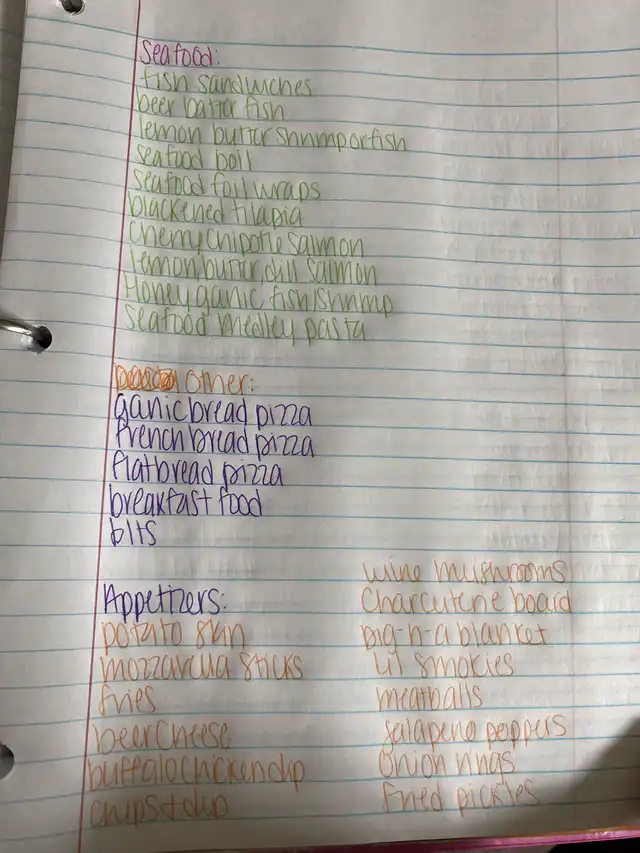 Seafood:
fish sandwiches
beer batter fish
lemon butter shrimp or fish
seafood boil
seafood foil wraps
blackened tilapia
cherry chipotle salmon
lemon butter dill salmon
Honey garlic fish/shrimp
seafood medley pasta
Other:
garlic bread pizza
french bread pizza
flatbread pizza
breakfast food
blts
Appetizers:
potato skin
mozzarella sticks
fries
beer cheese
buffalo chicken dip
chips + dip
wine mushrooms
Charcuterie board
pig-n-a blanket
lil smokies
meatballs
jalapeno peppers
onion rings
fried pickles